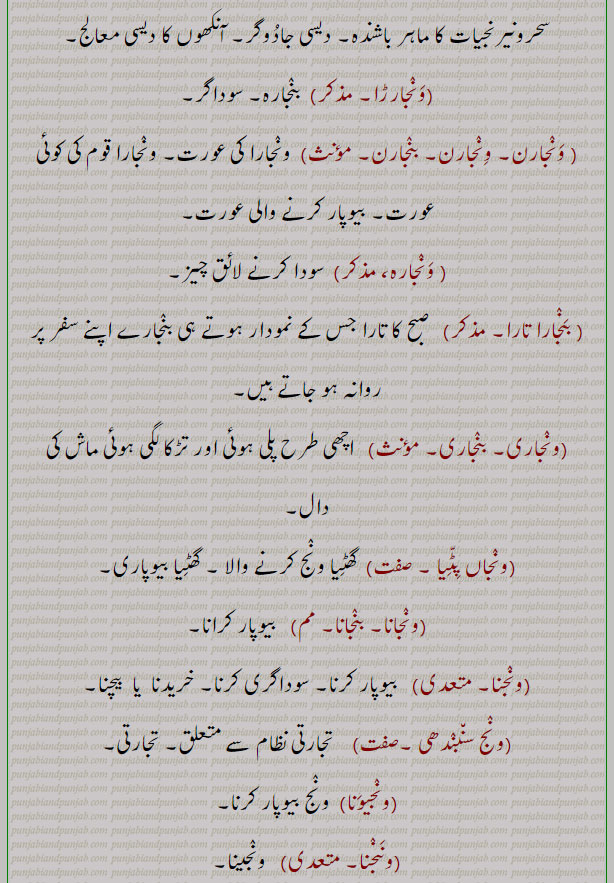 سحر و نیرنجیات کا ماہر باشندہ۔ دیسی جادُوگر۔ آنکھوں کا دیسی معالج۔
(وَنْجارڑا۔ مذکر) بنْجارہ۔ سوداگر۔
( وَنْجارن۔ وِنْجارن۔ بنْجارن۔ مؤنث) ونْجارا کی عورت۔ ونْجارا قوم کی کوئی
عورت۔ بیوپار کرنے والی عورت۔
( وَنْجارہ، مذکر) سودا کرنے لائق چیز۔
( بَنْجارا تارا۔ مذکر) صبح کا تارا جس کے نمودار ہوتے ہی بنْجارے اپنے سفر پر
روانہ ہو جاتے ہیں۔
(ونْجاری۔ بنْجاری۔ مؤنث) اچھی طرح پلی ہوئی اور تڑکا لگی ہوئی ماش کی
دال۔
(ونْجاں پِٹّیا ۔ صفت) گھٹِیا ونْج کرنے والا ۔ گھٹِیا بیوپاری۔
(ونْجانا۔ بنْجانا۔ مم) بیوپار کرانا۔
(ونْجنا۔ متعدی) بیوپار کرنا۔ سوداگری کرنا۔ خریدنا یا بیچنا۔
(ونْج سنّبنْدھی ۔صفت) تجارتی نظام سے متعلق۔ تجارتی۔
(ونْجیونا) ونْج بیوپار کرنا۔
(ونَنْجنا۔ متعدی) ونْجینا۔